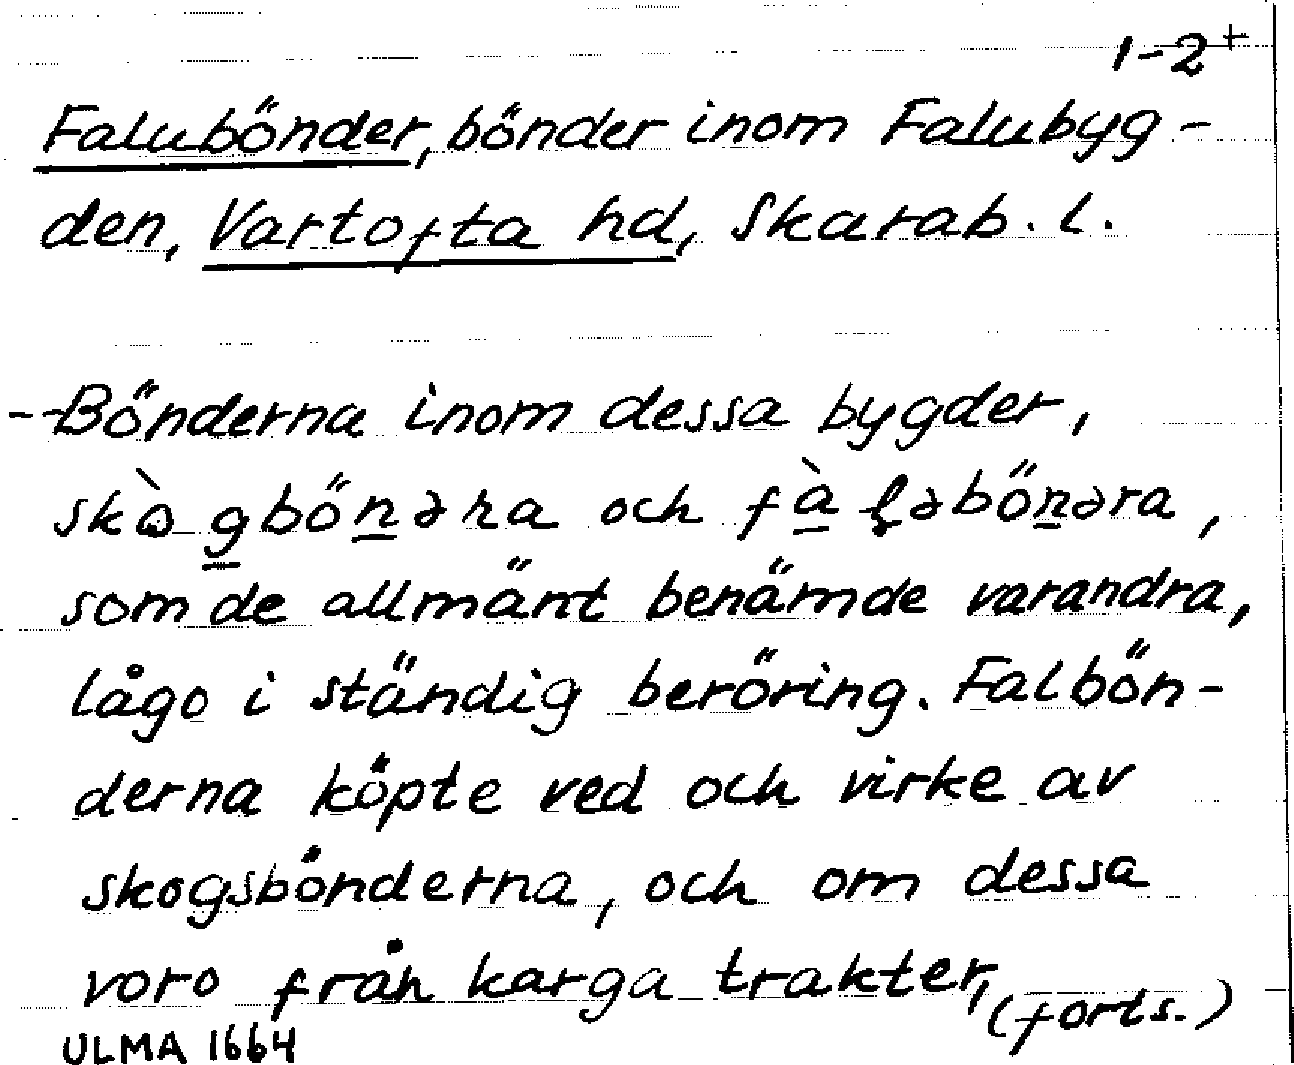 1-2+
Falubönder, bönder inom Falubyg-
den, Vartofta hd, Skarab. l.
--Bönderna inom dessa bygder,
skògbönəra och fàɽəbönəra,
som de allmänt benämde varandra,
lågo i ständig beröring. Falbön-
derna köpte ved och virke av
skogsbönderna, och om dessa
voro från karga trakter,
(forts.)
ULMA 1664